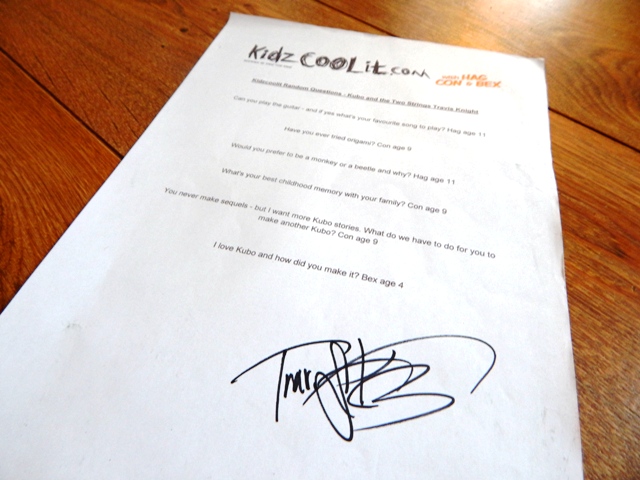 Kidz COOLit.com
with HAG
CON & BEX
Kidzcoolit Random Questions - Kubo and the Two Strings Travis Knight
Can you play the guitar - and if yes what's your favourite song to play? Hag age 11
Have you ever tried origami? Con age 9
Would you prefer to be a monkey or a beetle and why? Hag age 11
What's your best childhood memory with your family? Con age 9
You never make sequels - but I want more Kubo stories. What do we have to do for you to
make another Kubo? Con age 9
I love Kubo and how did you make it? Bex age 4